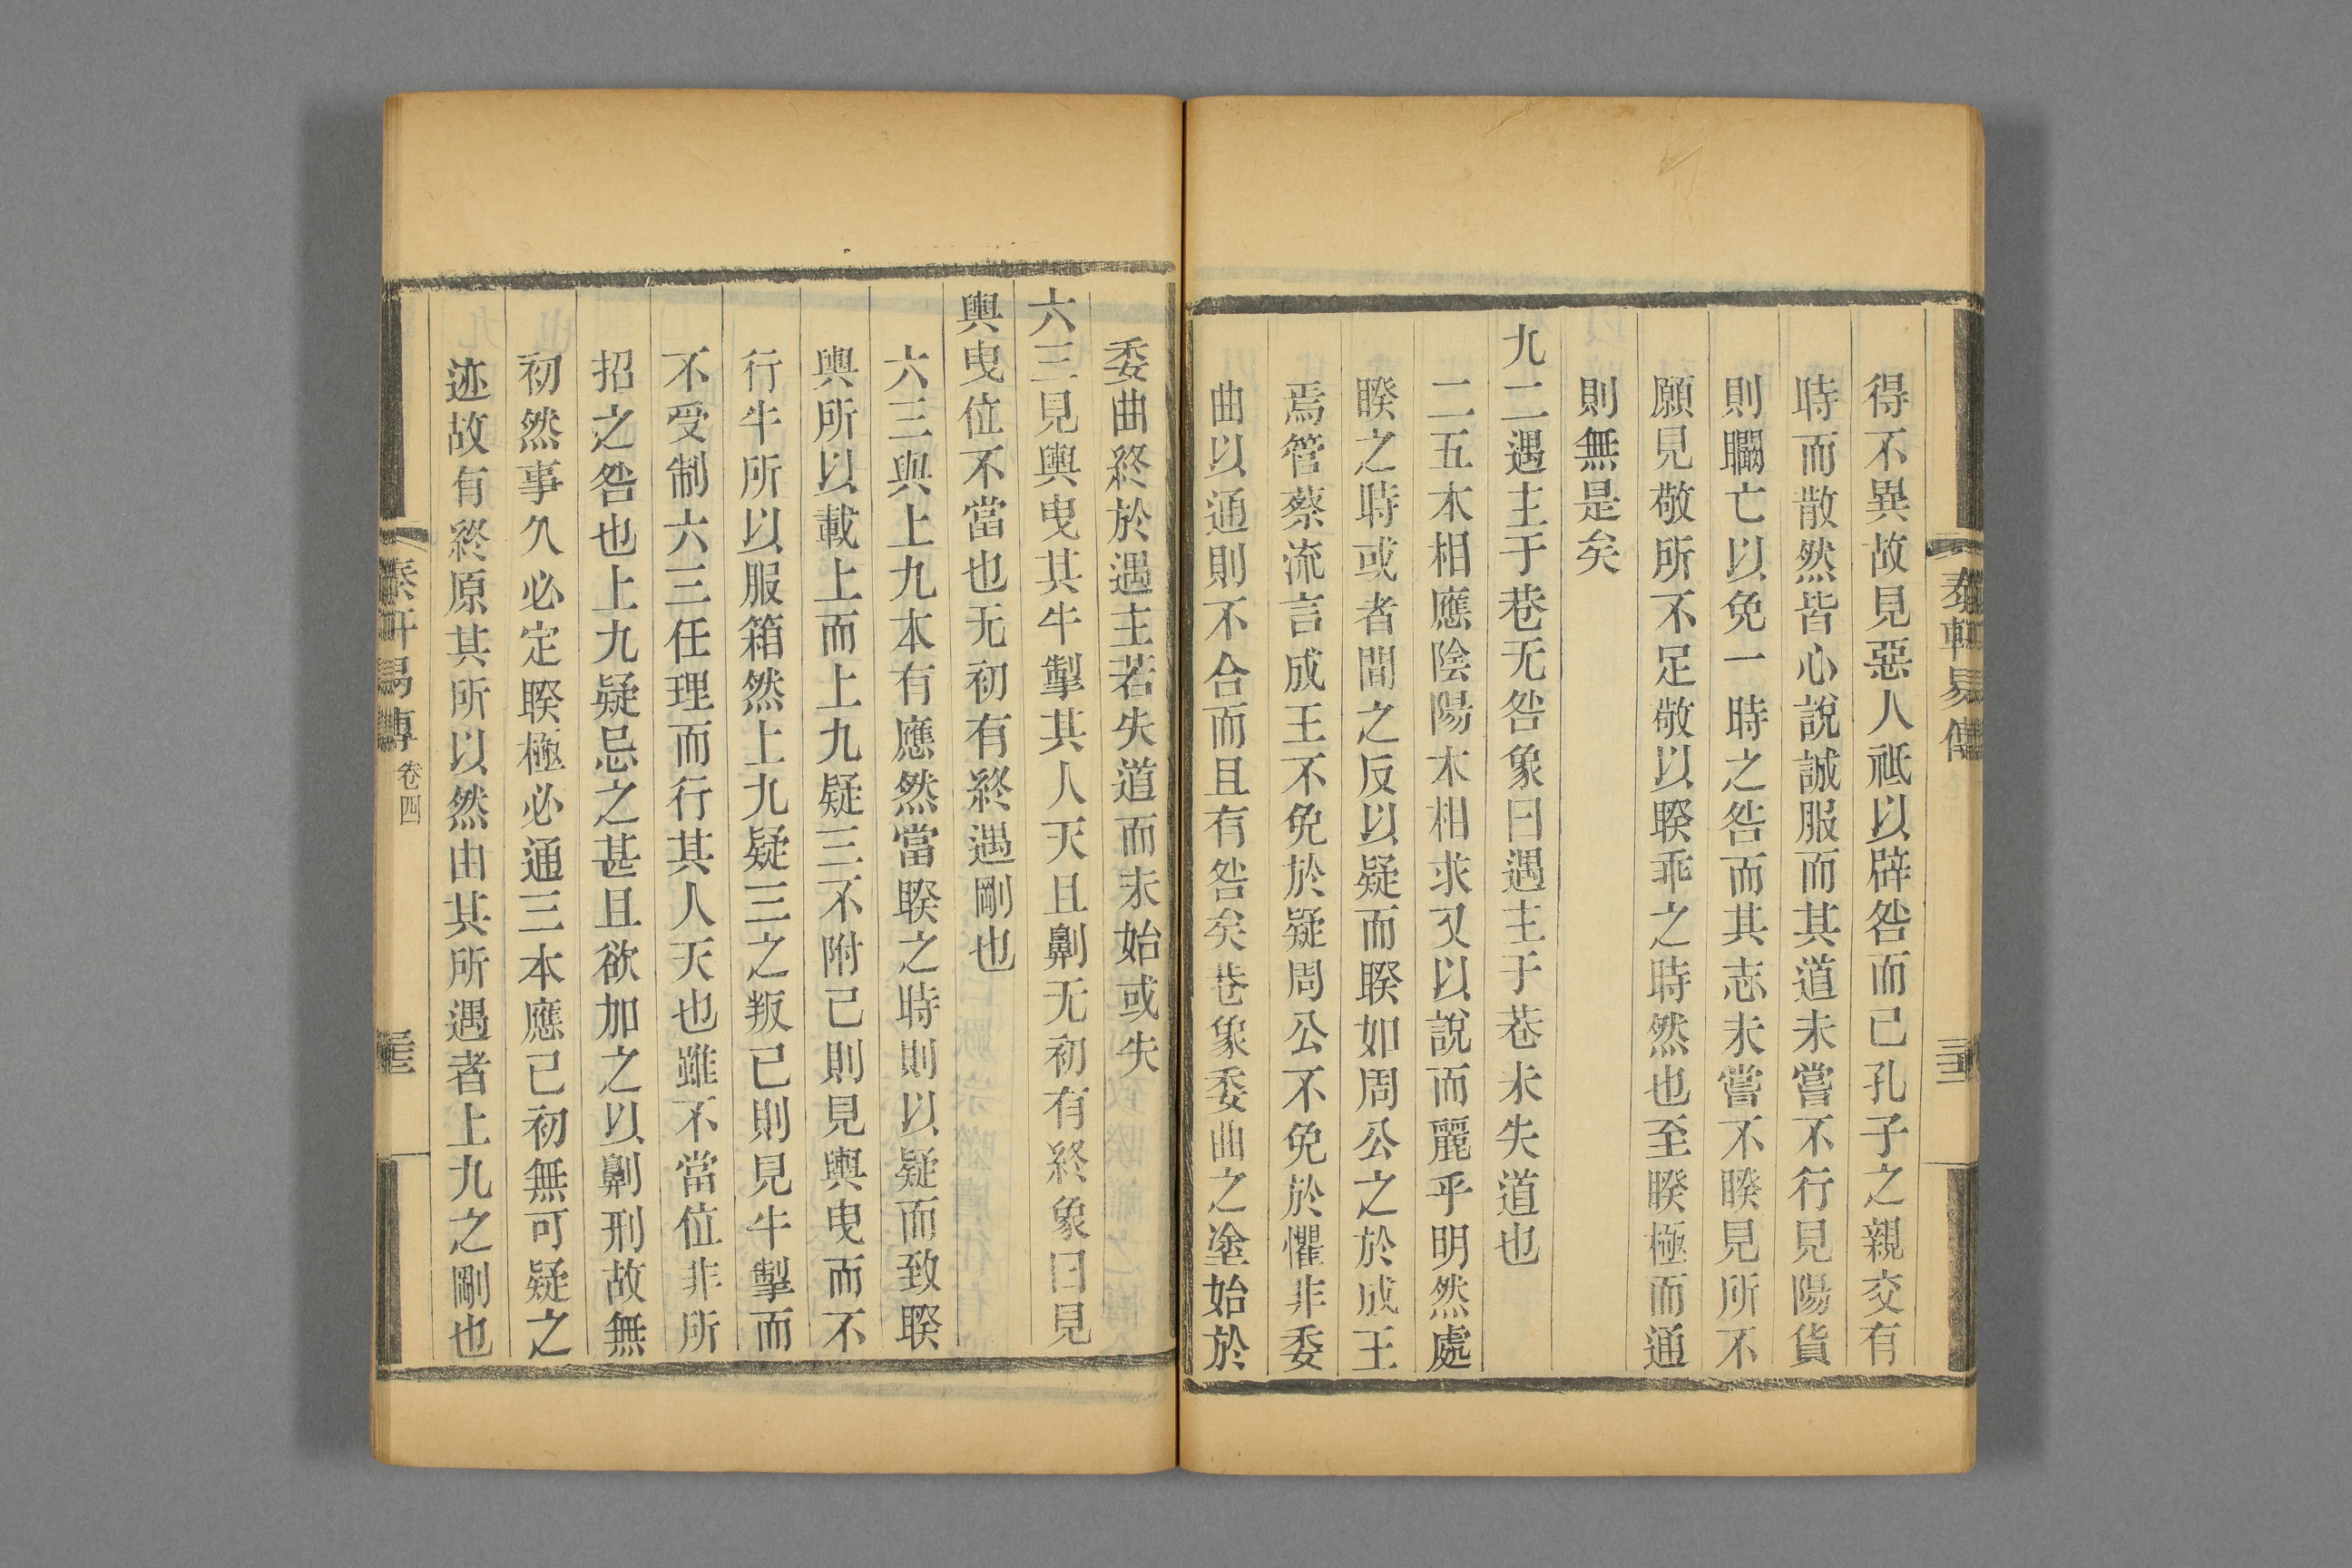 泰軒易傳
得不異故見惡人祗以辟咎而已孔子之親交有
時而散然皆心說誠服而其道未嘗不行見陽貨
則矙亡以免一時之咎而其志未嘗不睽見所不
願見敬所不足敬以睽乖之時然也至睽極而通
則無是矣
九二遇主于巷无咎象曰遇主于巷未失道也
二五本相應陰陽本相求又以說而麗乎明然處
睽之時或者間之反以疑而睽如周公之於成王
焉管蔡流言成王不免於疑周公不免於懼非委
曲以通則不合而且有咎矣巷象委曲之塗始於
委曲終於遇主若失道而未始或失
六三見輿曳其牛掣其人天且劓无初有終象曰見
輿曳位不當也无初有終遇剛也
六三與上九本有應然當睽之時則以疑而致睽
輿所以載上而上九疑三不附己則見輿曳而不
行牛所以服箱然上九疑三之叛己則見牛掣而
不受制六三任理而行其人天也雖不當位非所
招之咎也上九疑忌之甚且欲加之以劓刑故無
初然事久必定睽極必通三本應己初無可疑之
迹故有終原其所以然由其所遇者上九之剛也
泰軒易傳 卷四